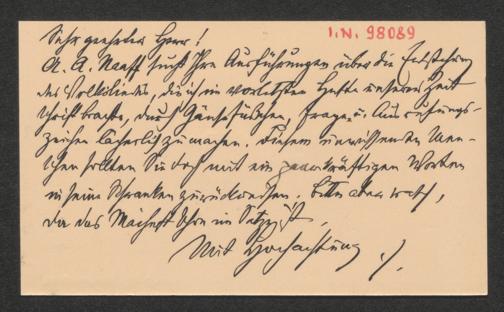 I.N. 98089
Sehr geehrter Herr!
A. A. Naaff sucht Ihre Ausführungen über die Entstehung
des Volksliedes, die ich im vorletzten Hefte unserer Zeit
schrift brachte, durch Gänsefüßchen, Frage- u. Ausrufungs-
zeichen lächerlich zu machen. Diesem unwissenden Men-
schen sollten Sie doch mit ein paar kräftigen Worten
in seine Schranken zurückweisen. Bitte aber rasch,
da das Maiheft schon im Satze ist.
Mit Hochachtung